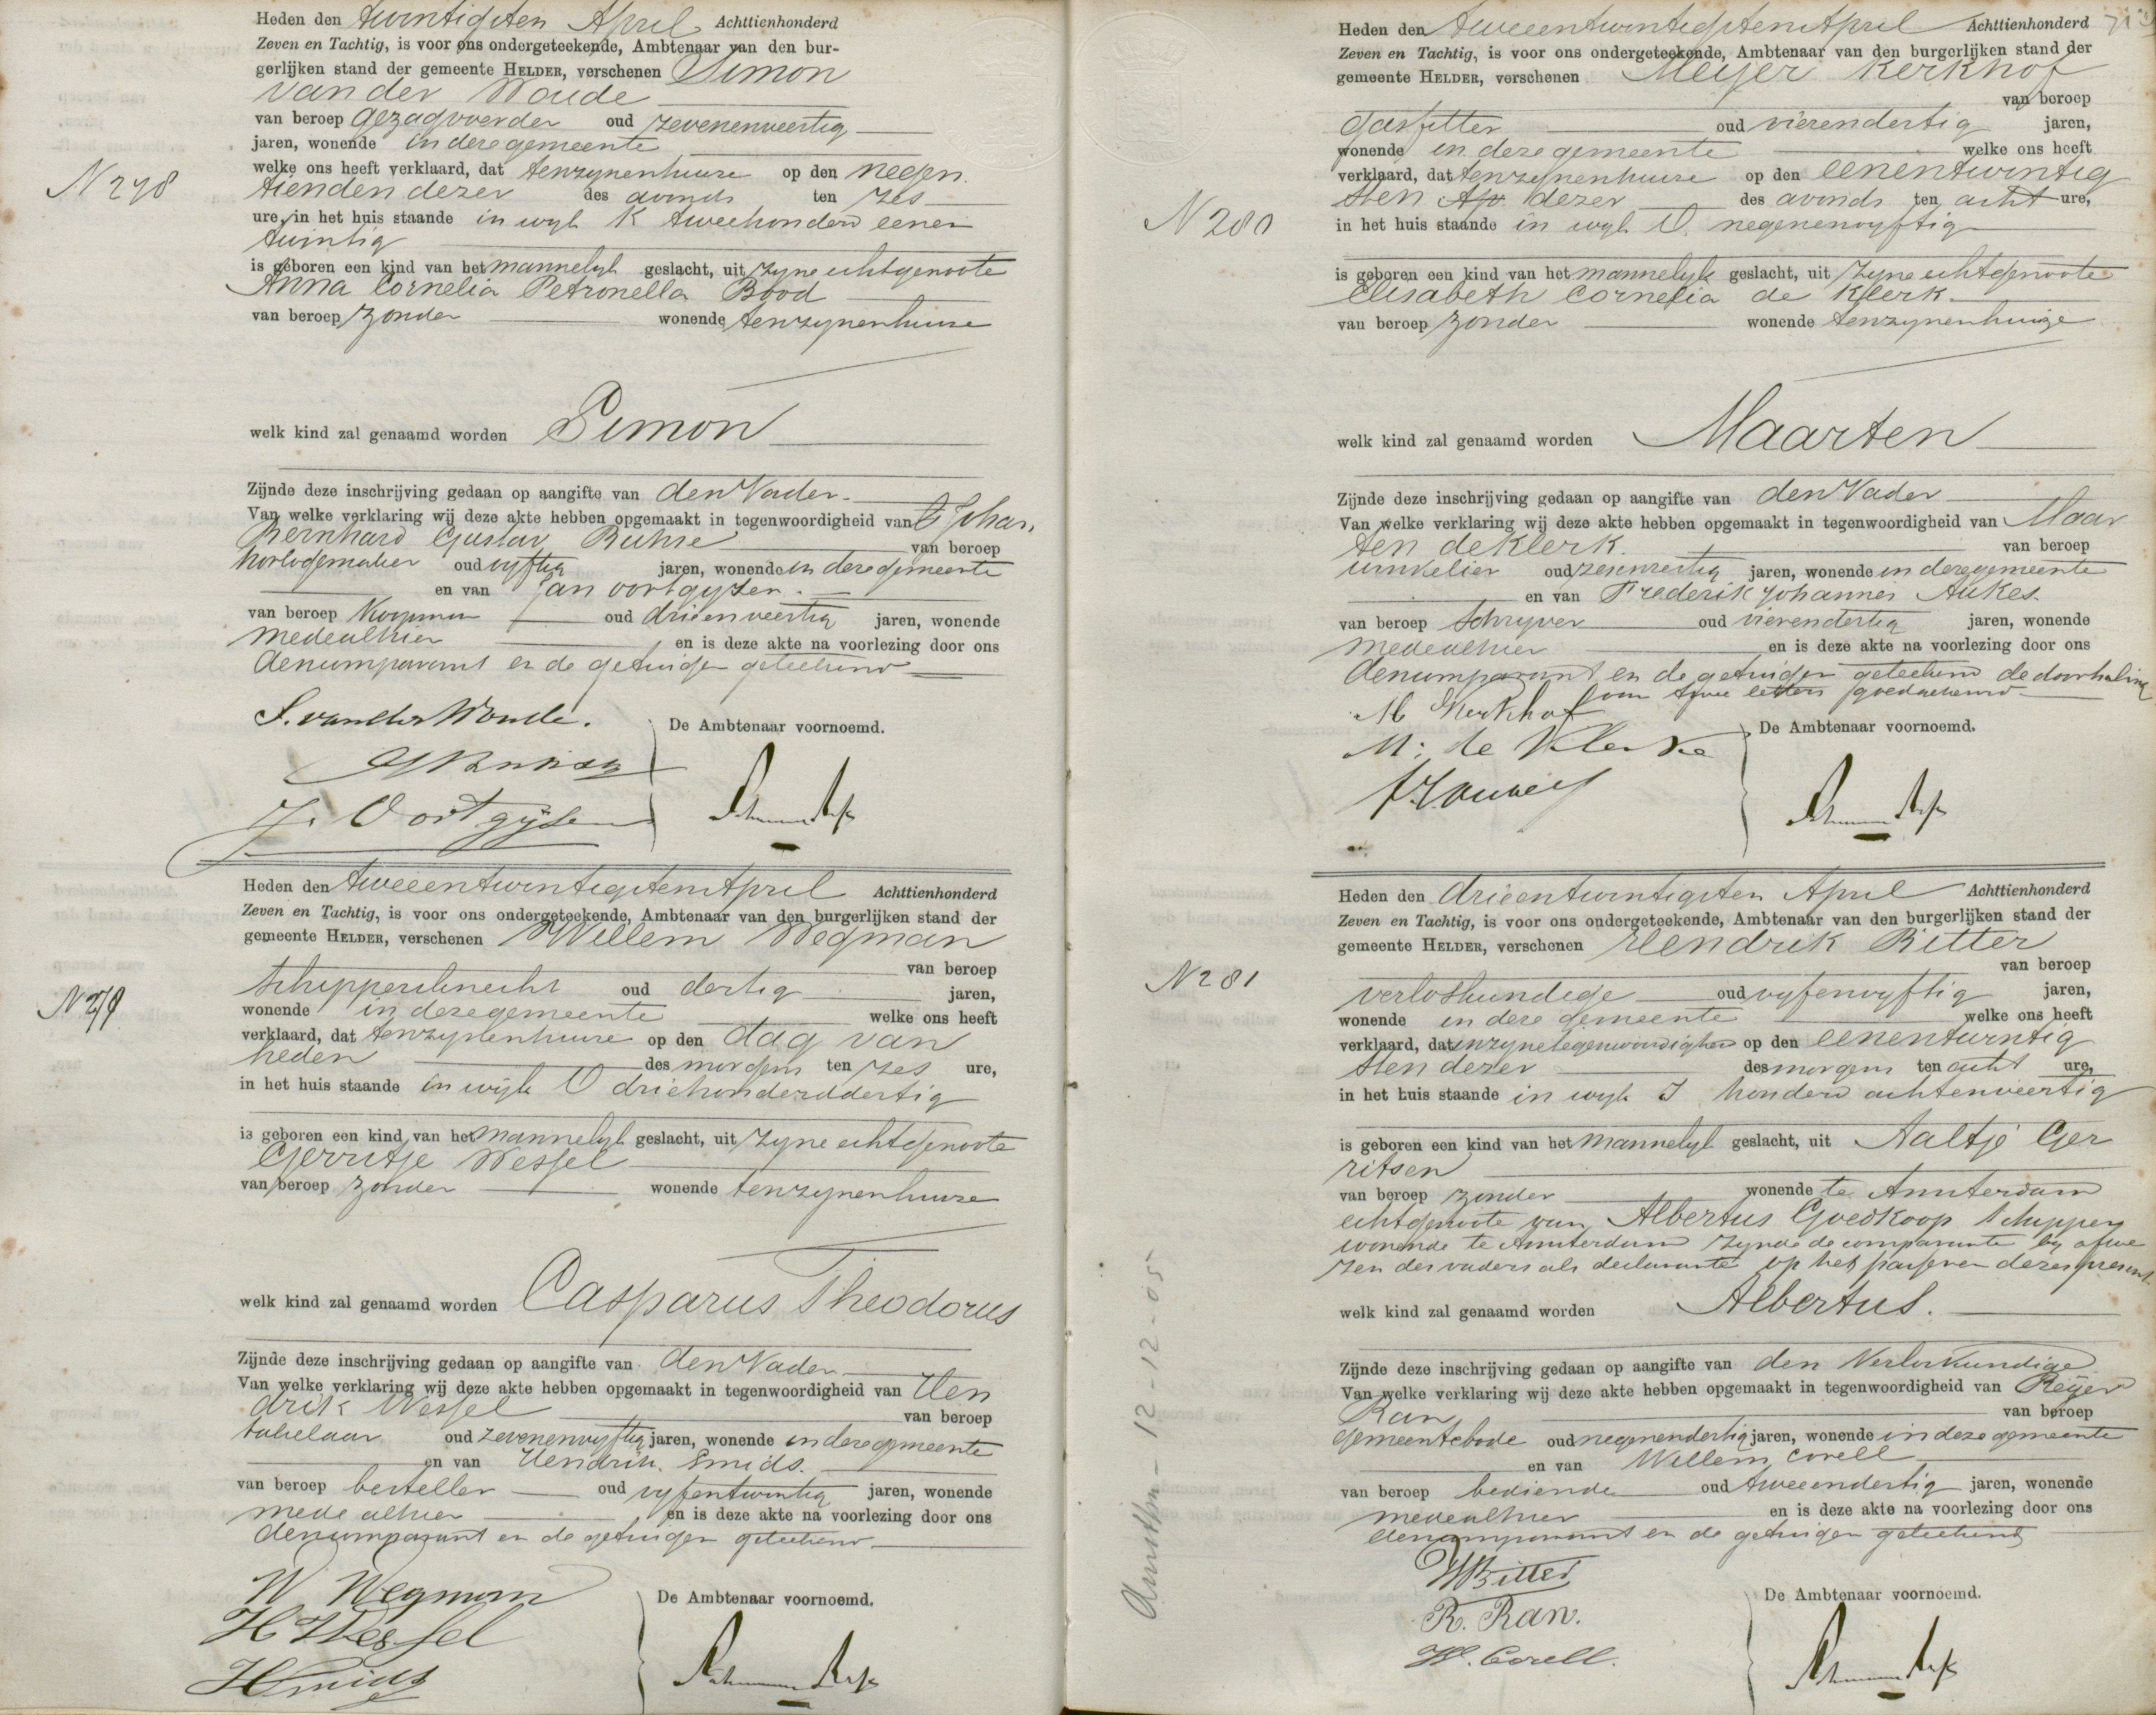 Heden den twintigsten April Achttienhonderd
Zeven en Tachtig, is voor ons ondergeteekende, Ambtenaar van den bur-
gerlijken stand der gemeente HELDER, verschenen Simon
van der Woude
van beroep gezagvoerder oud zevenenveertig
jaren, wonende in deze gemeente
N 278
welke ons heeft verklaard, dat tenzynenhuize op den negen
tienden dezer des avonds ten zes
ure, in het huis staande in wyk K tweehonderd eenen
twintig
is geboren een kind van het mannelyk geslacht, uit zyne echtgenoote
Anna Cornelia Petronella Bood
van beroep zonder wonende tenzynenhuize
welk kind zal genaamd worden Simon
Zijnde deze inschrijving gedaan op aangifte van den Vader
Van welke verklaring wij deze akte hebben opgemaakt in tegenwoordigheid van Johan
Bernhard Gustav Ruhse van beroep
horlogemaker oud vyftig jaren, wonende in deze gemeente
en van Jan Oortgyzen
van beroep Koopman oud drieenveertig jaren, wonende
mede alhier en is deze akte na voorlezing door ons
den comparant en de getuigen geteekend
S. van der Woude.
De Ambtenaar voornoemd.
J. Oortgijsen
Heden den tweeentwintigsten April Achttienhonderd
Zeven en Tachtig, is voor ons ondergeteekende, Ambtenaar van den burgerlijken stand der
gemeente HELDER, verschenen Willem Wegman
van beroep
N 279
schippersknecht oud dertig jaren,
wonende in deze gemeente welke ons heeft
verklaard, dat tenzynenhuize op den dag van
heden des morgens ten zes ure,
in het huis staande in wyk O driehonderddertig
is geboren een kind van het mannelyk geslacht, uit zyne echtgenoote
Gerritje Wessel
van beroep zonder wonende tenzynenhuize
welk kind zal genaamd worden Casparus Theodorus
Zijnde deze inschrijving gedaan op aangifte van den Vader
Van welke verklaring wij deze akte hebben opgemaakt in tegenwoordigheid van Hen
drik Wessel van beroep
oud zevenenvyftig jaren, wonende in deze gemeente
en van Hendrik Smids.
van beroep besteller oud vyfentwintig jaren, wonende
mede alhier en is deze akte na voorlezing door ons
den comparant en de getuigen geteekend
W Wegman
De Ambtenaar voornoemd.
H Wessel
H Smids
713
Heden den tweeentwintigsten April Achttienhonderd
Zeven en Tachtig, is voor ons ondergeteekende, Ambtenaar van den burgerlijken stand der
gemeente HELDER, verschenen Meijer Kerkhof
van beroep
gasfitter oud vierendertig jaren,
wonende in deze gemeente welke ons heeft
verklaard, dat tenzynenhuize op den eenentwintig
N 280
sten Ap dezer des avonds ten acht ure,
in het huis staande in wyk O. negenenvyftig
is geboren een kind van het mannelyk geslacht, uit zyne echtgenoote
Elisabeth Cornelia de Klerk
van beroep zonder wonende tenzynenhuize
welk kind zal genaamd worden Maarten
Zijnde deze inschrijving gedaan op aangifte van den Vader
Van welke verklaring wij deze akte hebben opgemaakt in tegenwoordigheid van Maar
ten de Klerk. van beroep
winkelier oud zesenzestig jaren, wonende in deze gemeente
en van Frederik Johannes Aukes
van beroep schryver oud vierendertig jaren, wonende
mede alhier en is deze akte na voorlezing door ons
den comparant en de getuigen geteekend de doorhaling
van twee letters goedgekeurd
M Kerkhof
De Ambtenaar voornoemd.
M: de Klerk
Heden den drieentwintigsten April Achttienhonderd
Zeven en Tachtig, is voor ons ondergeteekende, Ambtenaar van den burgerlijken stand der
gemeente HELDER, verschenen Hendrik Bitter
van beroep
N 281
verloskundige oud vyfenvyftig jaren,
wonende in deze gemeente welke ons heeft
verklaard, dat in zyne tegenwoordigheid op den eenentwintig
sten dezer des morgens ten acht ure,
in het huis staande in wyk I honderd achtenveertig
is geboren een kind van het mannelyk geslacht, uit Aaltje Ger
ritsen
van beroep zonder wonende te Amsterdam
echtgenoote van Albertus Goedkoop schipper
wonende te Amsterdam zynde de comparante by afwe
zen des vaders als declarante op het passeren dezer present
welk kind zal genaamd worden Albertus.
Zijnde deze inschrijving gedaan op aangifte van den Verloskundige
Van welke verklaring wij deze akte hebben opgemaakt in tegenwoordigheid van Reijer
Ran van beroep
gemeentebode oud negenendertig jaren, wonende in deze gemeente
en van Willem Corell
van beroep bediende oud tweeendertig jaren, wonende
mede alhier en is deze akte na voorlezing door ons
den comparant en de getuigen geteekend
HBitter
De Ambtenaar voornoemd.
R. Ran.
W. Corell.
Amstdm - 12-12-05